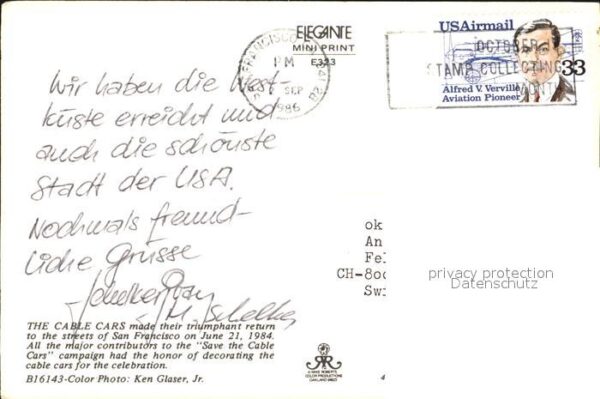 ELEGANTE
MINI PRINT
E323
SAN FRANCISCO, CA
PM
SEP
1986
USAirmail
OCTOBER
STAMP COLLECTING
MONTH
33
Alfred V. Verville
Aviation Pioneer
Wir haben die West-
küste erreicht und
auch die schönste
Stadt der USA.
Nochmals freund-
liche Grüsse
M. Schelker
ok
An
Fe
CH-800
Sw
privacy protection
Datenschutz
THE CABLE CARS made their triumphant return
to the streets of San Francisco on June 21, 1984.
All the major contributors to the "Save the Cable
Cars" campaign had the honor of decorating the
cable cars for the celebration.
B16143-Color Photo: Ken Glaser, Jr.
COLOR PRODUCTIONS
4